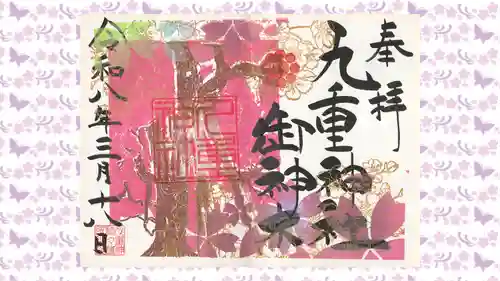 奉拝
九重神社
御神木
令和八年三月十八日
九重
神社